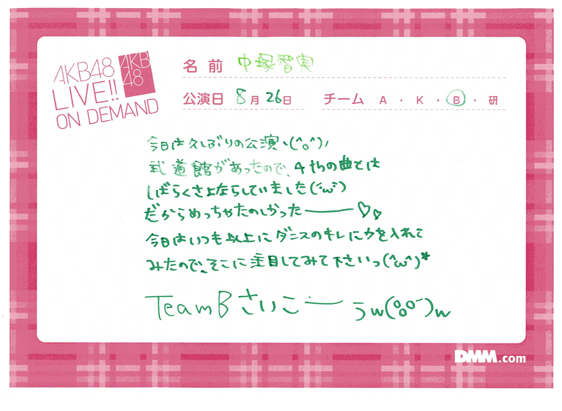 AKB48
LIVE!!
ON DEMAND
AKB
48
名前 中塚智実
公演日 8月26日 チーム A・K・B・研
今日は久しぶりの公演ヽ(^o^)ノ
武道館があったので、4thの曲とは
しばらくさよならしていました(´・ω・`)
だからめっちゃたのしかったーー♡♡
今日はいつも以上にダンスのキレに力を入れて
みたので、そこに注目してみて下さいっ(^ω^)*
TeamBさいこーー うw(°o°)w
DMM.com